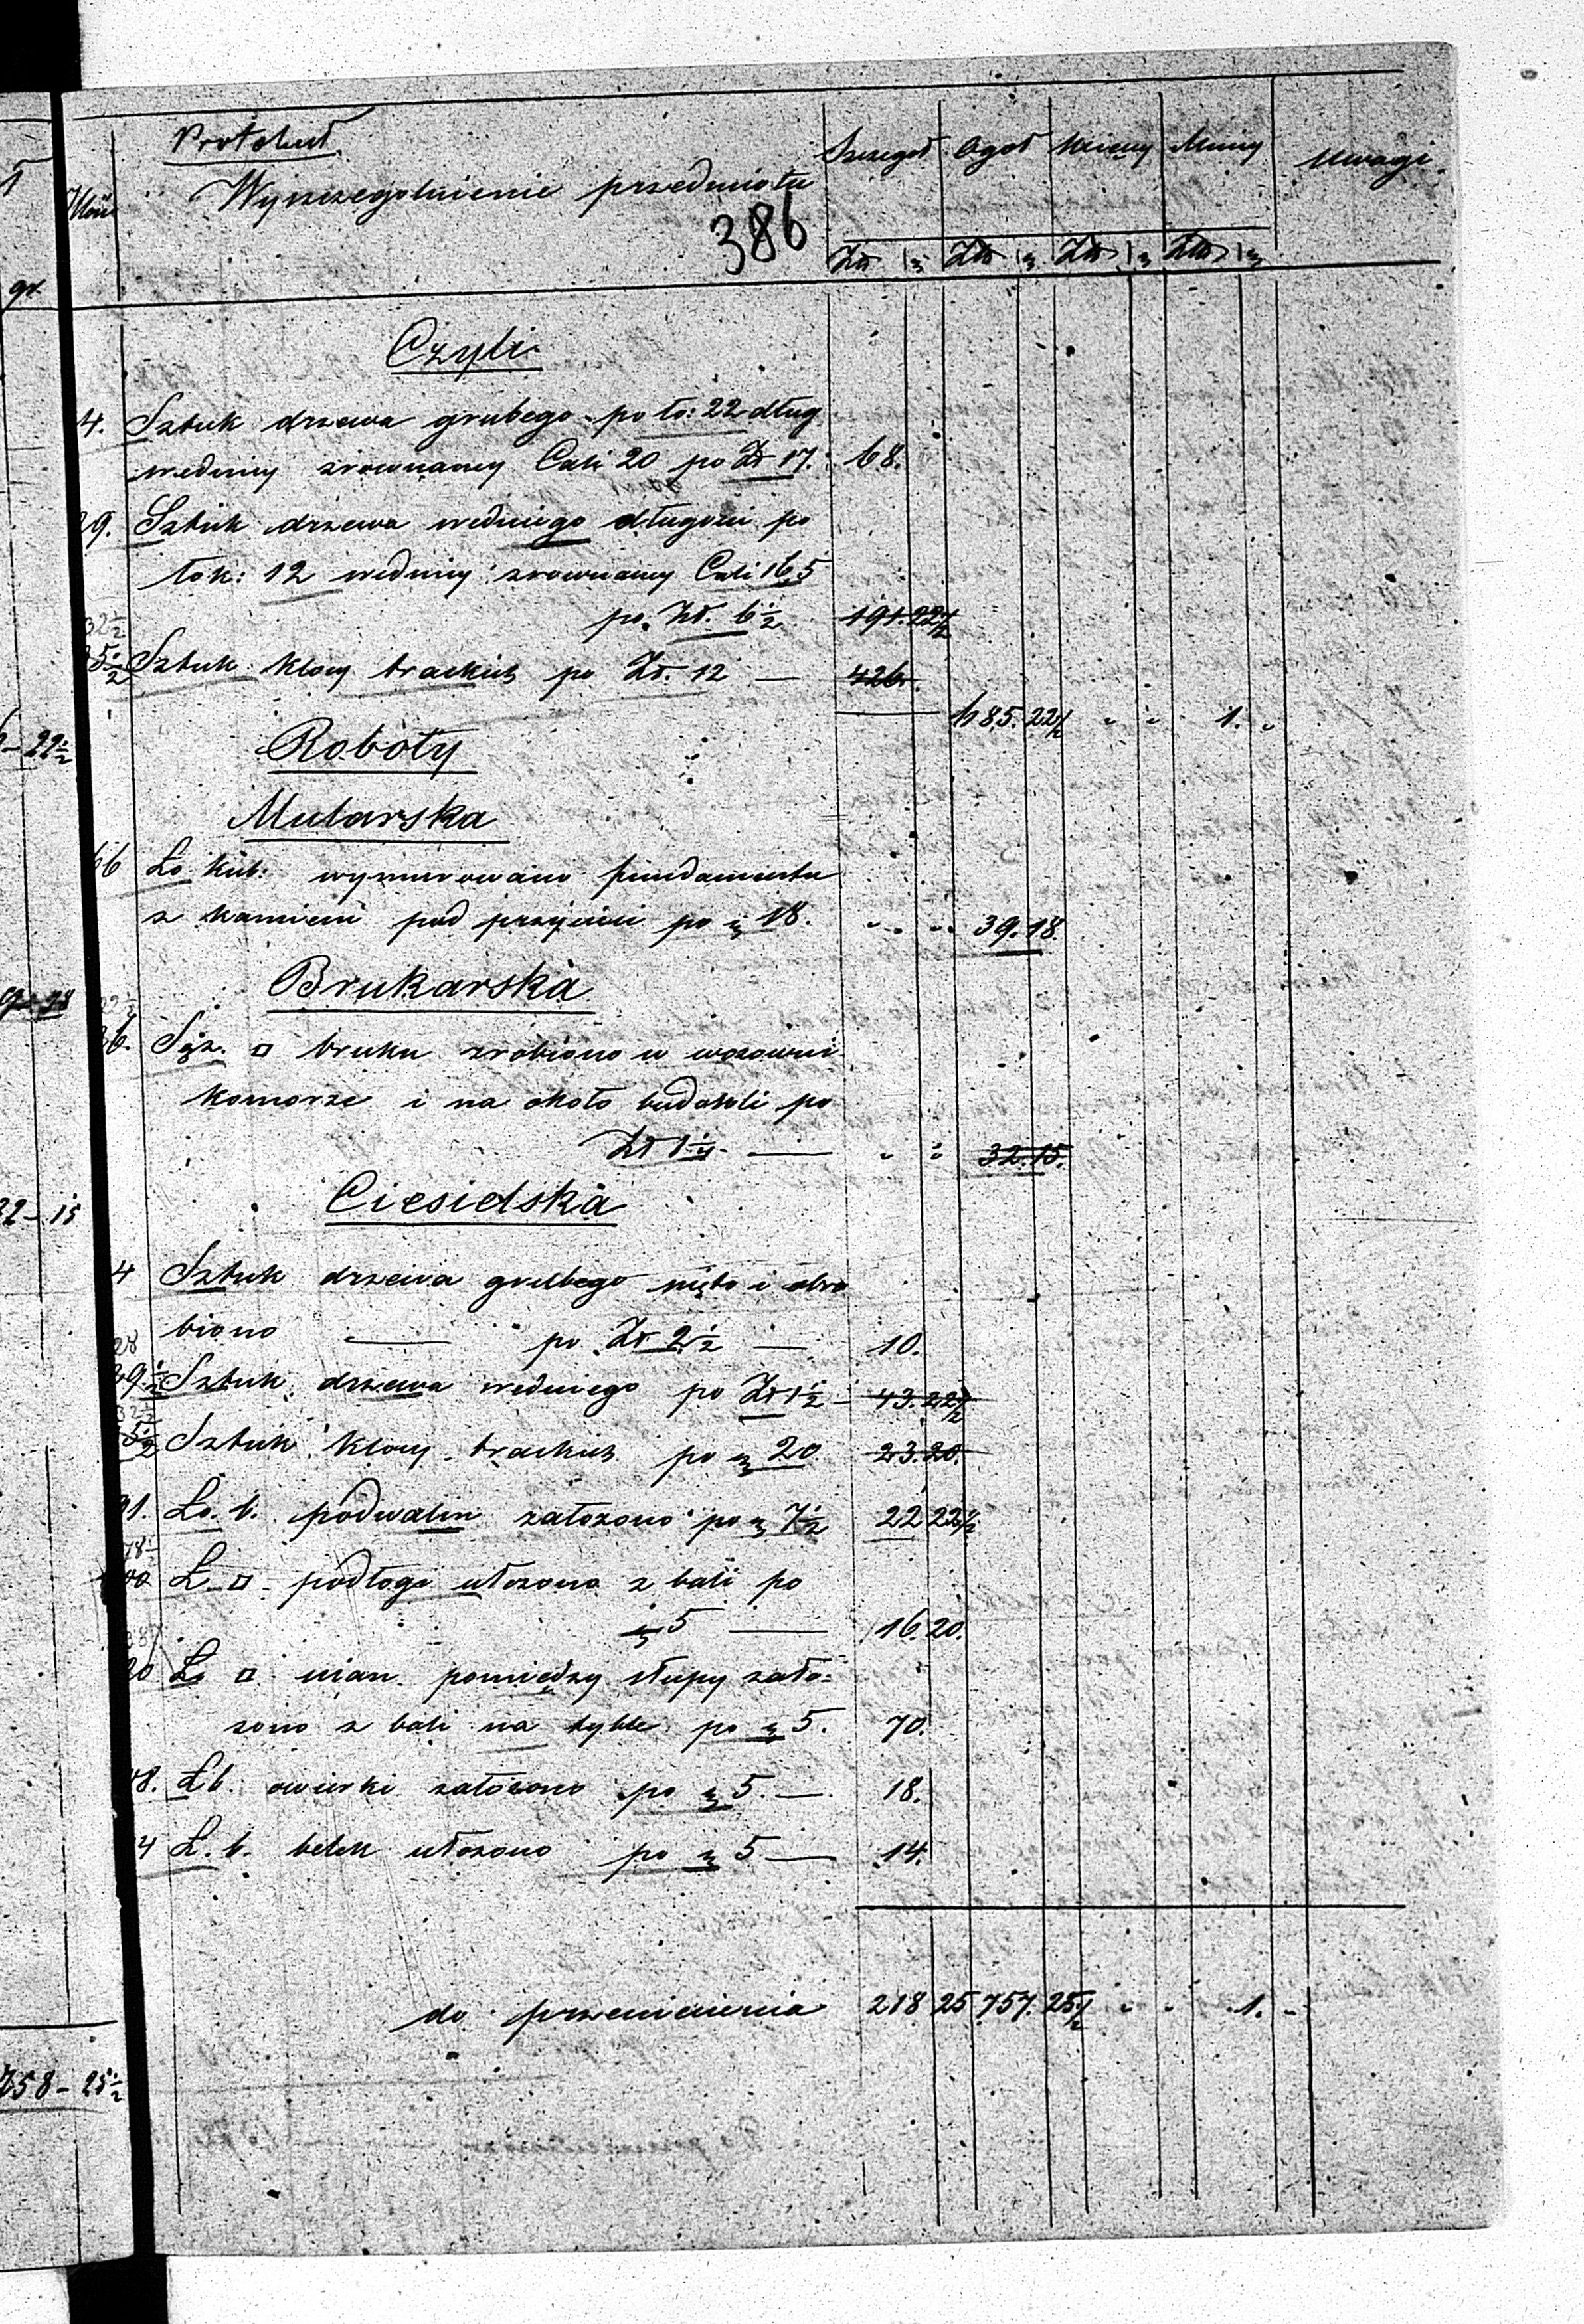 Protokuł
Wyszczegolnienie przedmiotu
Szczegoł Ogoł Więcey Mniey Uwagi
386
Zł gr Zł gr Zł gr Zł gr
gr.
Czyli
4. Sztuk drzewa grubego po ło: 22 dług
średniey zrównaney Cali 20 po Zł 17. 68.
29. Sztuk drzewa średniego długości po
łok: 12 średniey zrównaney Cali 16,5
po Zł. 6½ 191. 22½
32½
35½ Sztuk klocy trackich po Zł. 12 — 426.
685. 22½ " " 1. "
22½
Roboty
Mularska
66 Ło. kub: wymurowano fundamentu
z kamieni pod przyciesi po gr 18. " " 39. 18.
Brukarska
26. Sąż. □ bruku zrobiono w wozowni
komorze i na około budowli po
Zł 1¼ — " " 32. 15.
32 – 15
Ciesielska
4 Sztuk drzewa grubego zcięto i obro
biono — po Zł 2½ — 10.
28
29½ Sztuk drzewa średniego po Zł 1½ – 43. 22½
32½
35½ Sztuk klocy trackich po gr 20. 23. 20.
91. Ło. b. podwalin założono po gr 7½ 22 22½
78
100 Ł □ podłogi ułożono z bali po
gr 5 — 16. 20.
20 Ło □ ścian pomiędzy słupy zało=
żono z bali na dyble po gr 5. 70.
08. Ł b. oćwierki założono po gr 5. — 18.
4 Ł. b. belek ułożono po gr 5 — 14.
do przeniesienia 218 25 757. 25½ " " 1. –
758 – 25½